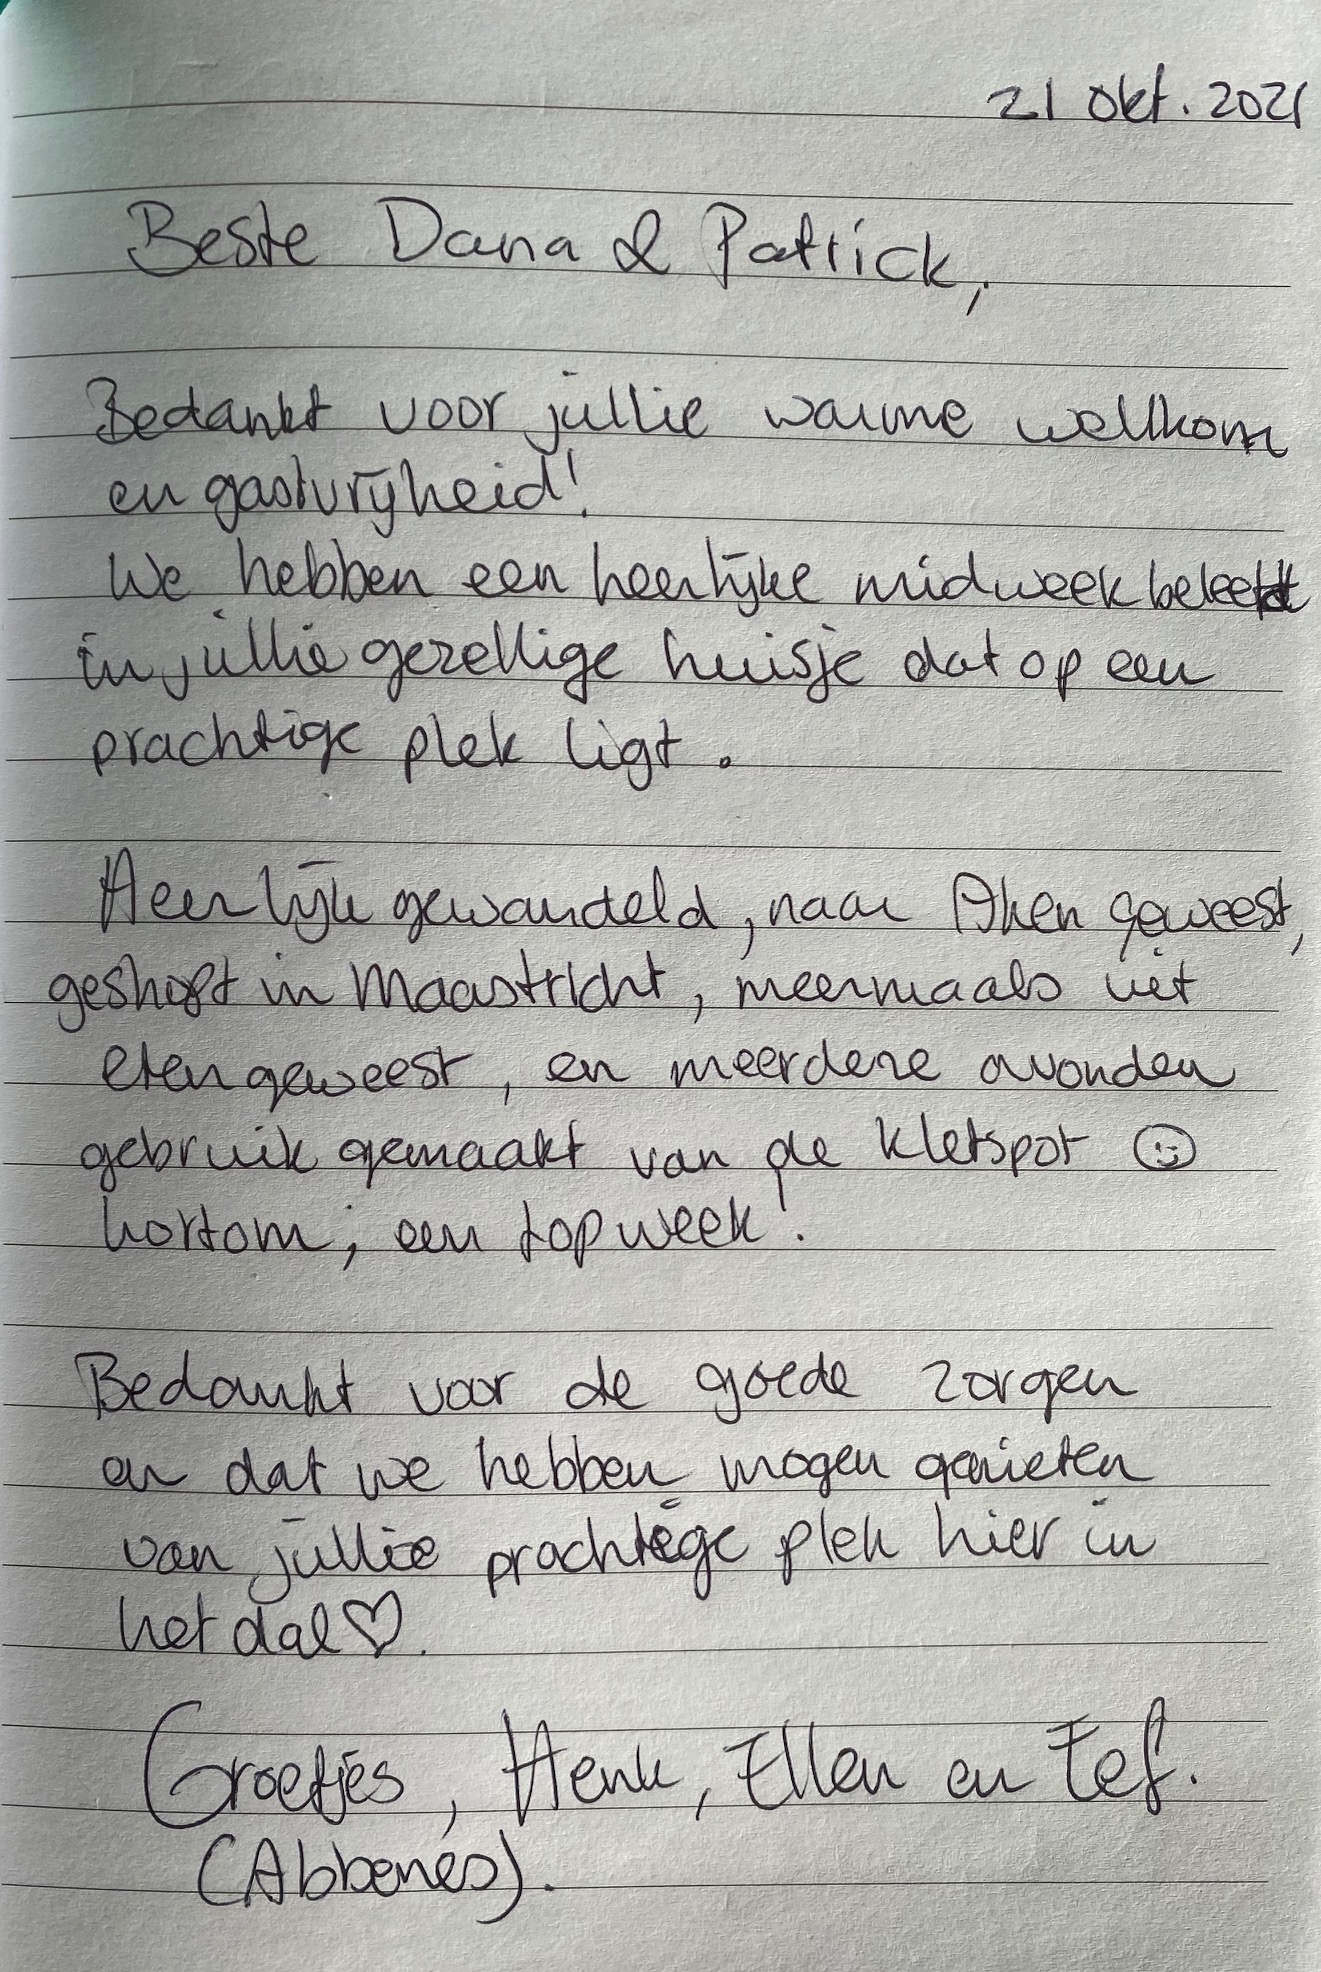 21 okt. 2021
Beste Dana & Patrick,
Bedankt voor jullie warme wellkom
en gastvrijheid!
We hebben een heerlijke midweek beleefd
in jullie gezellige huisje dat op een
prachtige plek ligt.
Heerlijk gewandeld, naar Aken geweest,
geshopt in Maastricht, meermaals uit
eten geweest, en meerdere avonden
gebruik gemaakt van de kletspot ☺
kortom; een topweek!
Bedankt voor de goede zorgen
en dat we hebben mogen genieten
van jullie prachtige plek hier in
het dal♡.
Groetjes, Henk, Ellen en Fef.
(Abbenes).